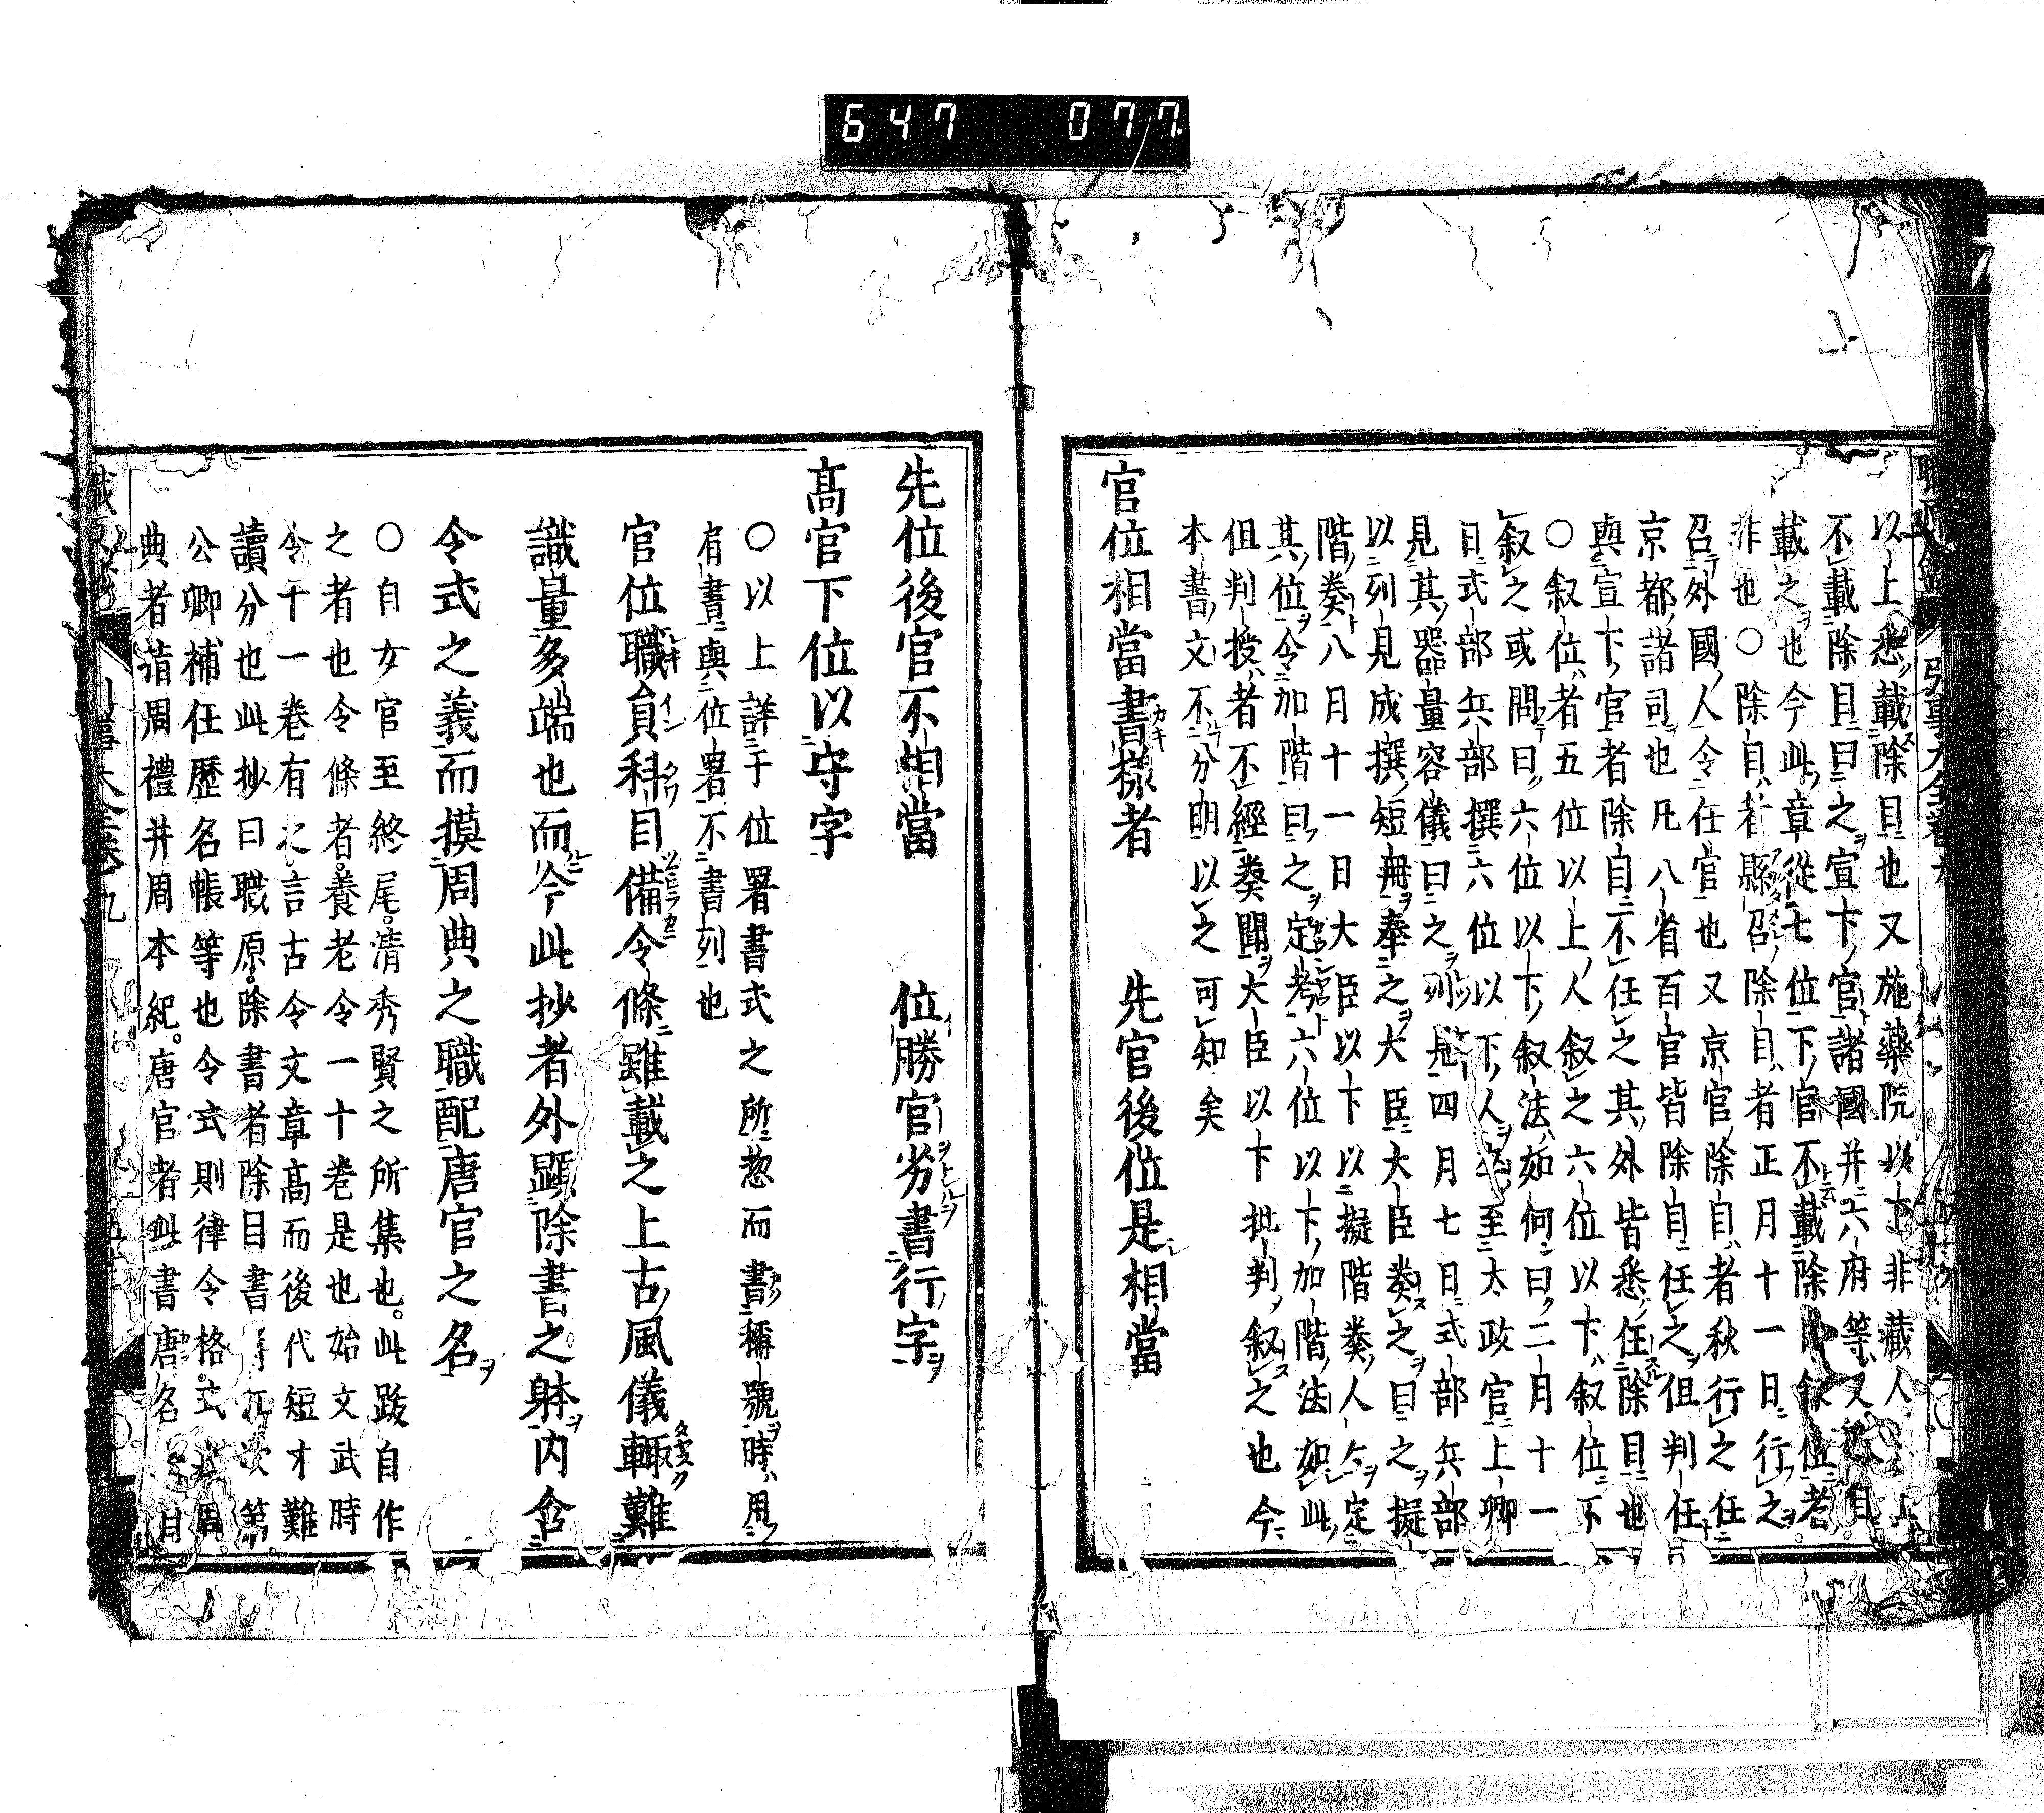 647 077
以上悉載除目也又施藥院以下非藏人
不載除目曰之宣下官諸國并六府等又目
載之也今此章從七位下官不載除叙位者
非也○除目者縣召除目者正月十一日行之
召外國人令任官也又京官除目者秋行之任
京都諸司也凡八省百官皆除目任之但判任
與宣下官者除目不任之其外皆悉任除目也
○叙位者五位以上人叙之六位以下叙位不
叙之或問曰六位以下叙法如何曰二月十一
日式部兵部撰六位以下人至太政官上卿
見其器量容儀曰之列見四月七日式部兵部
以列見成撰短冊奉之大臣大臣奏之曰之擬
階奏八月十一日大臣以下以擬階奏人定
其位令加階曰之定考六位以下加階法如此
但判授者不經奏聞大臣以下批判叙之也今
本書文不分明以之可知矣
官位相當書樣者 先官後位是相當
先位後官不相當 位勝官劣書行字
高官下位以守字
○以上詳于位署書式之所惣而書稱號時用
有書與位署不書列也
官位職員科目備令條雖載之上古風儀輙難
識量多端也而今此抄者外顯除書之躰内含
令式之義而摸周典之職配唐官之名
○自女官至終尾清秀賢之所集也此跋自作
之者也令條者養老令一十卷是也始文武時
令十一卷有之言古令文章高而後代短才難
讀分也此抄曰職原除書者除目書次第
公卿補任歷名帳等也令式則律令格式周
典者指周禮并周本紀唐官者此書唐名